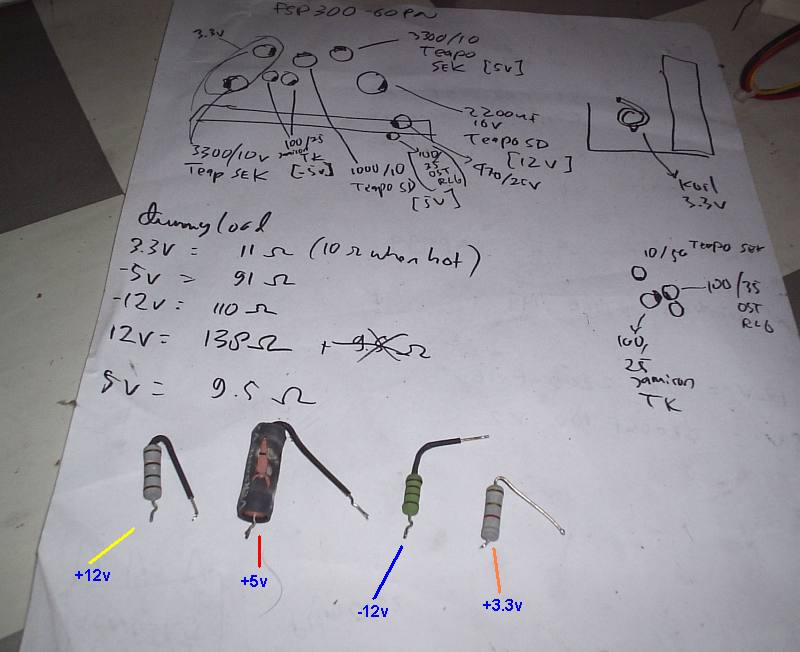 FSP300-60PN
3.3v
3300/10
Teapo
SEK [5v]
2200uf
16v
Teapo SD
[12v]
470/25v
3300/10v
Teap SEK
100/25
Jamicon
TK
[-5v]
1000/10
Teapo SD
100/
25
OST
RLG
[5v]
Koil
3.3v
dummy load
3.3v = 11 Ω (10 Ω when hot)
-5v = 91 Ω
-12v = 110 Ω
12v = 138 Ω + 9.5 Ω
5v = 9.5 Ω
10/50 Teapo SEK
100/35
OST
RLG
100/
25
Jamicon
TK
+12v
+5v
-12v
+3.3v